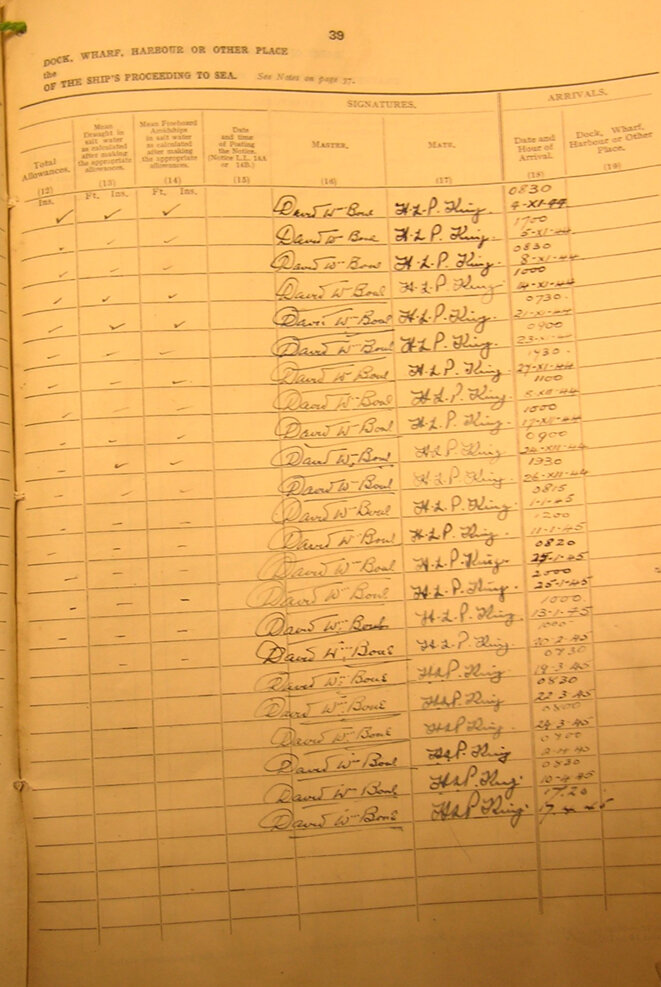 39
DOCK, WHARF, HARBOUR OR OTHER PLACE
the
OF THE SHIP'S PROCEEDING TO SEA. See Notes on page 37.
SIGNATURES. ARRIVALS.
Total Allowances. Mean Draught in salt water as calculated after making the appropriate allowances. Mean Freeboard Amidships in salt water as calculated after making the appropriate allowances. Date and time of Posting the Notice. (Notice L.L. 14A or 14B.) MASTER. MATE. Date and Hour of Arrival. Dock, Wharf, Harbour or Other Place.
(12) (13) (14) (15) (16) (17) (18) (19)
Ins. Ft. Ins. Ft. Ins. 0830
✓ ✓ ✓ David Wm Boul H.L.P. King 4-XI-44
1700
David Wm Boul H.L.P. King 5-XI-44
0830
David Wm Boul H.L.P. King 8-XI-44
1000
David Wm Boul H.L.P. King 14-XI-44
✓ ✓ ✓ 0730
David Wm Boul H.L.P. King 21-XI-44
0900
David Wm Boul H.L.P. King 23-XI-44
1430
David Wm Boul H.L.P. King 27-XI-44
1100
David Wm Boul H.L.P. King 8-XII-44
1000
David Wm Boul H.L.P. King 17-XII-44
0900
David Wm Boul H.L.P. King 24-XII-44
1330
David Wm Boul H.L.P. King 26-XII-44
0815
David Wm Boul H.L.P. King 1-1-45
1200
David Wm Boul H.L.P. King 11-1-45
0820
David Wm Boul H.L.P. King -1-45
2000
David Wm Boul H.L.P. King 25-1-45
1000
David Wm Boul H.L.P. King 13-1-45
1000
David Wm Boul H.L.P. King 10-2-45
0730
David Wm Boul H.L.P. King 19-3-45
0830
David Wm Boul H.L.P. King 22-3-45
0800
David Wm Boul H.L.P. King 24-3-45
David Wm Boul H.L.P. King
0830
David Wm Boul H.L.P. King 10-4-45
17.20
David Wm Boul H.L.P. King 17-4-45